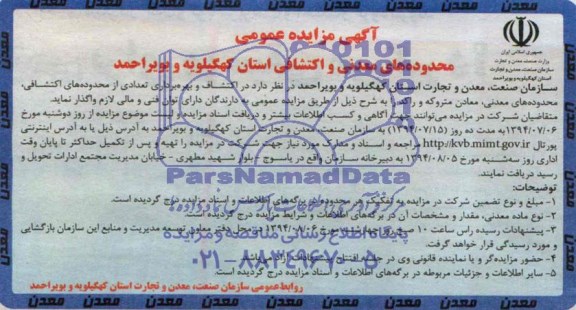 آگهی مزایده عمومی
محدوده‌های معدنی و اکتشافی استان کهگیلویه و بویراحمد
جمهوری اسلامی ایران
وزارت صنعت، معدن و تجارت
سازمان صنعت، معدن و تجارت
استان کهگیلویه و بویراحمد
سازمان صنعت، معدن و تجارت استان کهگیلویه و بویراحمد در نظر دارد در اکتشاف و بهره‌برداری تعدادی از محدوده‌های اکتشافی،
محدوده‌های معدنی، معادن متروکه و رها را به شرح ذیل از طریق مزایده عمومی به دارندگان دارای توان فنی و مالی لازم واگذار نماید.
متقاضیان شرکت در مزایده می‌توانند جهت آگاهی و کسب اطلاعات بیشتر و دریافت اسناد مزایده موضوع مزایده از روز دوشنبه مورخ
۱۳۹۴/۰۷/۰۶ به مدت ده روز (۱۳۹۴/۰۷/۱۵) به سازمان صنعت، معدن و تجارت استان کهگیلویه و بویراحمد به آدرس ذیل یا به آدرس اینترنتی
پورتال http://kvb.mimt.gov.ir مراجعه و اسناد و مدارک مورد نیاز جهت شرکت در مزایده را تهیه و پس از تکمیل حداکثر تا پایان وقت
اداری روز سه‌شنبه مورخ ۱۳۹۴/۰۸/۰۵ به دبیرخانه سازمان واقع در یاسوج - بلوار شهید مطهری - خیابان مدیریت مجتمع ادارات تحویل و
رسید دریافت نمایند.
توضیحات:
۱- مبلغ و نوع تضمین شرکت در مزایده به تفکیک هر محدوده در برگه‌های اطلاعات و اسناد مزایده درج گردیده است.
۲- نوع ماده معدنی، مقدار و مشخصات آن در برگه‌های اطلاعات و شرایط مزایده درج گردیده است.
۳- پیشنهادات رسیده راس ساعت ۱۰ صبح روز چهارشنبه مورخ ۱۳۹۴/۰۸/۰۶ در محل دفتر معاون توسعه مدیریت و منابع این سازمان بازگشایی
و مورد رسیدگی قرار خواهد گرفت.
۴- حضور مزایده‌گر و یا نماینده قانونی وی در جلسه افتتاح پیشنهادات آزاد می‌باشد.
۵- سایر اطلاعات و جزئیات مربوطه در برگه‌های اطلاعات و اسناد مزایده درج گردیده است.
روابط عمومی سازمان صنعت، معدن و تجارت استان کهگیلویه و بویراحمد
ParsNamadData
پایگاه اطلاع رسانی مناقصه و مزایده
۰۲۱-۸۸۳۴۹۶۷۰-۵